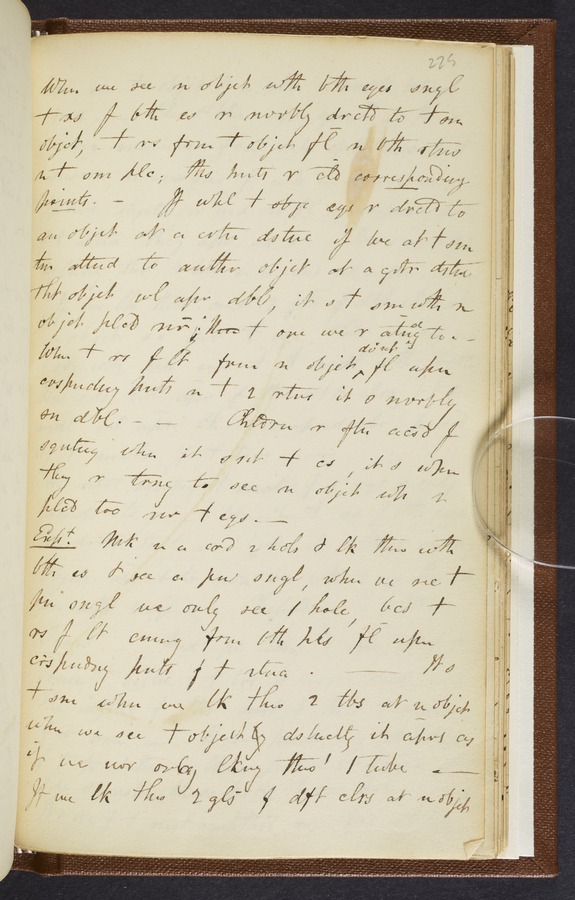 225
When we see n objct wth bth eyes sngl
t xs f bth es r nvrbly drctd to t sm
objct, t rs from t objct fl n bth rtns
n t sm plc; ths pnts r cld corresponding
points. — If whl t objc eys r drctd to
an objct at a crtn dstnc if we at t sm
tm attnd to anthr objct at a grtr dstnc
tht objct wl apr dbl, it s t sm wth n
objct plcd nrr; t one we r atndg to. —
Whn t rs f lt from n objct dont fl upn
crspndng pnts n t 2 rtns it s nvrbly
sn dbl. — — Chldrn r oftn acsd f
sqntng whn it snt t cs, it s when
they r tryng to see n objct wh s
plcd too nr t eys. —
Expt. Mk n a crd 2 hols & lk thro wth
bth es & see a pn sngl, whn we see t
pn sngl we only see 1 hole, bcs t
rs f lt cmng from bth hls fl upn
crspndng pnts f t rtna. — It s
t sm when we lk thro 2 tbs at n objct
whn we see t objct dstnctly it aprs as
if we wer only lkng thro' 1 tube —
If we lk thro 2 gls f dft clrs at n objct